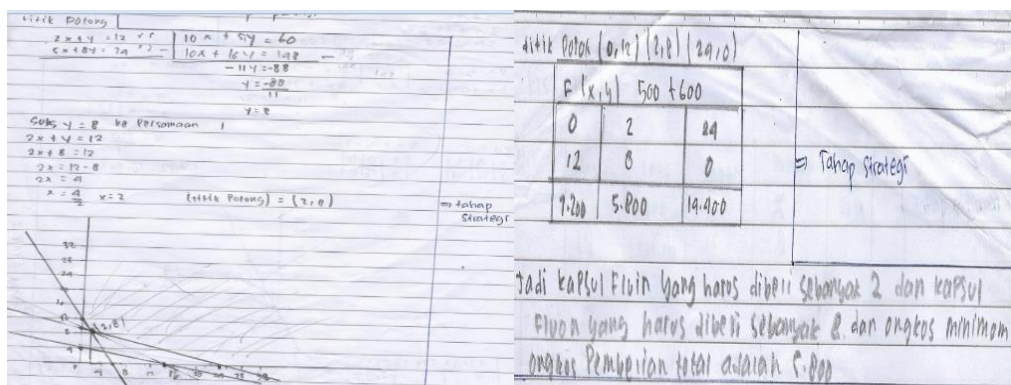 titik Potong
2x + y = 12
10x + 5y = 60
10x + 16y = 148
-11y = -88
y = -88
11
y = 8
Subs y = 8 ke Persamaan 1
2x + y = 12
2x + 8 = 12
2x = 12 - 8
2x = 4
x = 4
2
x = 2
(titik Potong) = (2,8)
⇒ tahap
Strategi
(2,8)
titik Pojok (0,12) (2,8) (24,0)
F(x,y) 500 + 600
0 2 24
12 8 0
7.200 5.800 14.400
⇒ Tahap Strategi
Jadi kapsul Fluin yang harus dibeli sebanyak 2 dan kapsul
Fluon yang harus dibeli sebanyak 8. dan ongkos minimom
ongkos Pembelian total adalah 5.800